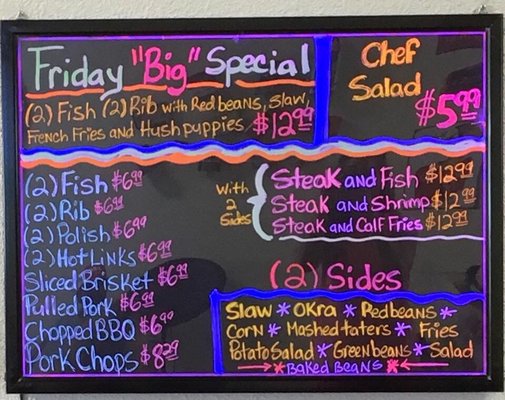 Friday "Big" Special
(2) Fish (2) Rib with Red beans, Slaw,
French Fries and Hush puppies $12.99
Chef
Salad
$5.99
(2) Fish $6.99
(2) Rib $6.99
(2) Polish $6.99
(2) Hot Links $6.99
Sliced Brisket $6.99
Pulled Pork $6.99
Chopped BBQ $6.99
Pork Chops $8.29
With
2
Sides
Steak and Fish $12.99
Steak and Shrimp $12.99
Steak and Calf Fries $12.99
(2) Sides
Slaw * Okra * Red beans *
Corn * Mashed taters * Fries
Potato Salad * Green beans * Salad
→ * Baked Beans * ←